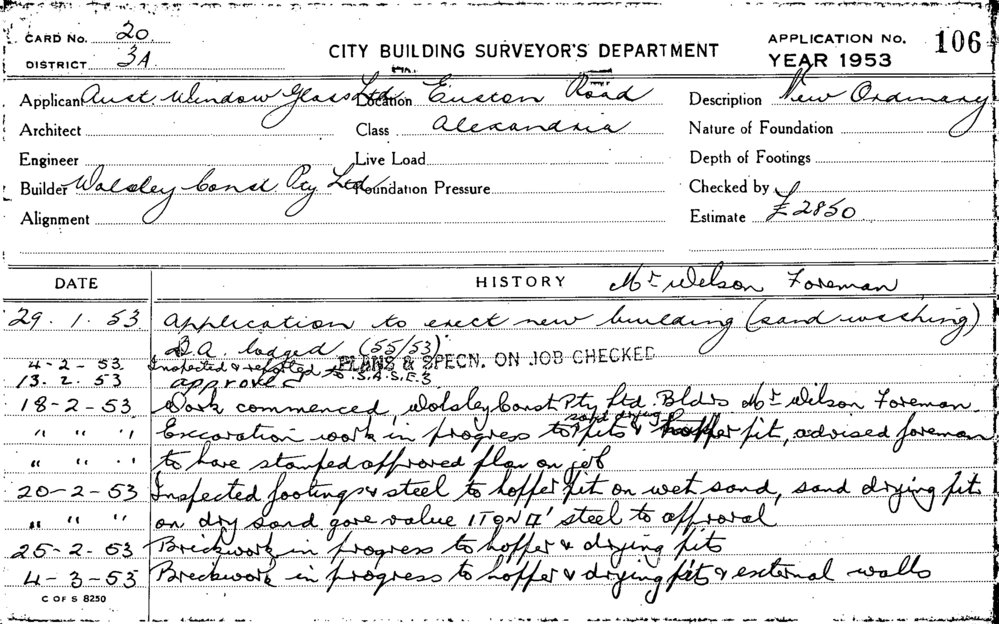 CARD No. 20
DISTRICT 3A
CITY BUILDING SURVEYOR'S DEPARTMENT
APPLICATION No. 106
YEAR 1953
Applicant Aust. Window Glass Ltd Location Euston Road Description New Ordinary
Architect Class Alexandria Nature of Foundation
Engineer Live Load Depth of Footings
Builder Wolsley Const Pty Ltd Foundation Pressure Checked by
Alignment Estimate £2850
DATE HISTORY Mr Wilson Foreman
29.1.53 Application to erect new building (sand washing)
D.A. lodged (55/53)
4-2-53 Inspected & reported to S.A.S.E.3 PLANS & SPECN. ON JOB CHECKED
13.2.53 approved
18-2-53 Work commenced, Wolsley Const Pty Ltd. Bldrs Mr Wilson Foreman
" " " Excavation work in progress to sand drying pits & hopper pit, advised foreman
" " " to have stamped approved plan on job
20-2-53 Inspected footings & steel to hopper pit on wet sand, sand drying pits
" " " on dry sand gave value 1T ON □' steel to approval
25-2-53 Brickwork in progress to hopper & drying pits
4-3-53 Brickwork in progress to hopper & drying pits & external walls
C OF S 8250